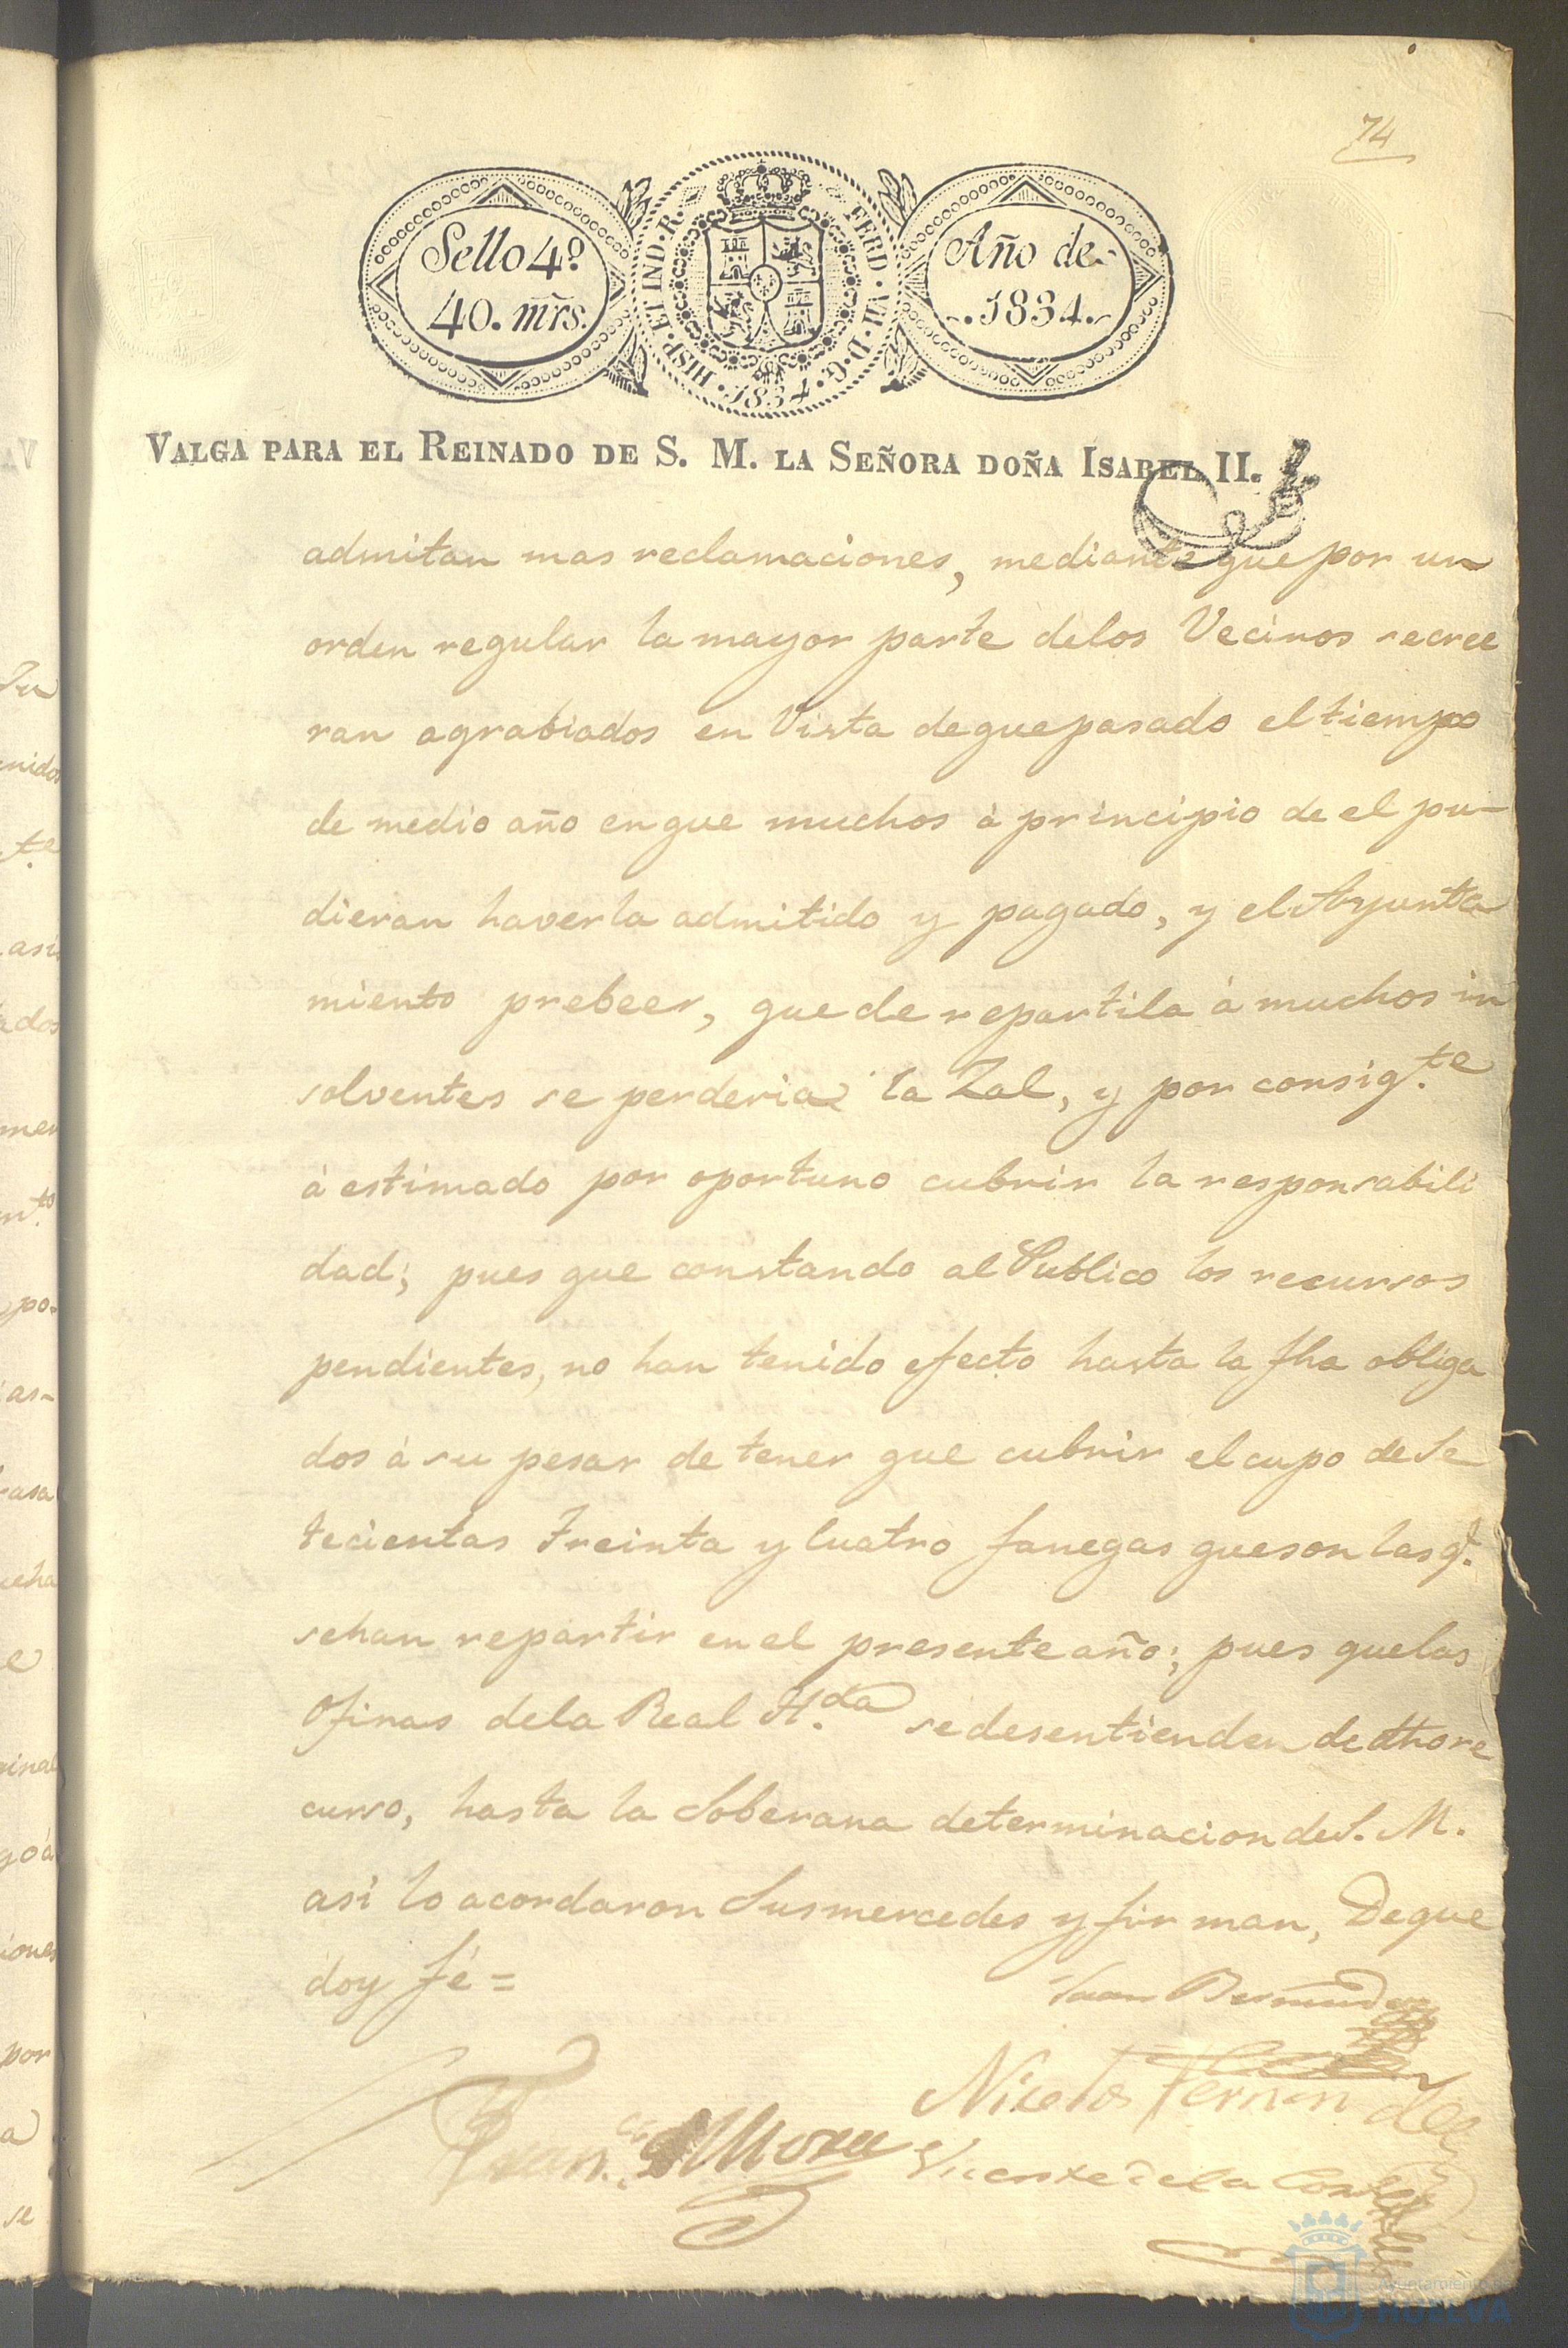 74
Sello 4º
40. mrs.
HISP. ET IND. R.
FERD. VII. D. G.
1834.
Año de
1834.
VALGA PARA EL REINADO DE S. M. LA SEÑORA DOÑA ISABEL II.
admitan mas reclamaciones, mediante que por un
orden regular la mayor parte delos Vecinos secree
ran agrabiados en Vista deque pasado el tiempo
de medio año enque muchos à principio de el pu-
dieran haverla admitido y pagado, y el Ayunta
miento prebeer, que de repartila à muchos in
solventes se perderia la Zal, y por consig.te
à estimado por oportuno cubrir la responsabili
dad; pues que constando al Publico los recursos
pendientes, no han tenido efecto hasta la fha obliga
dos à su pesar de tener que cubrir el cupo de Se
tecientas Treinta y Cuatro fanegas queson las q.e
sehan repartir en el presente año; pues quelas
Ofinas dela Real H.da sedesentienden de dho re
curso, hasta la Soberana determinacion de S. M.
asi lo acordaron Susmercedes y firman, Deque
doy fé =
Juan Bermudez
Niceto Fernandez
Fran.co Mora
Vicente de la Corte
Ayuntamiento de
HUELVA